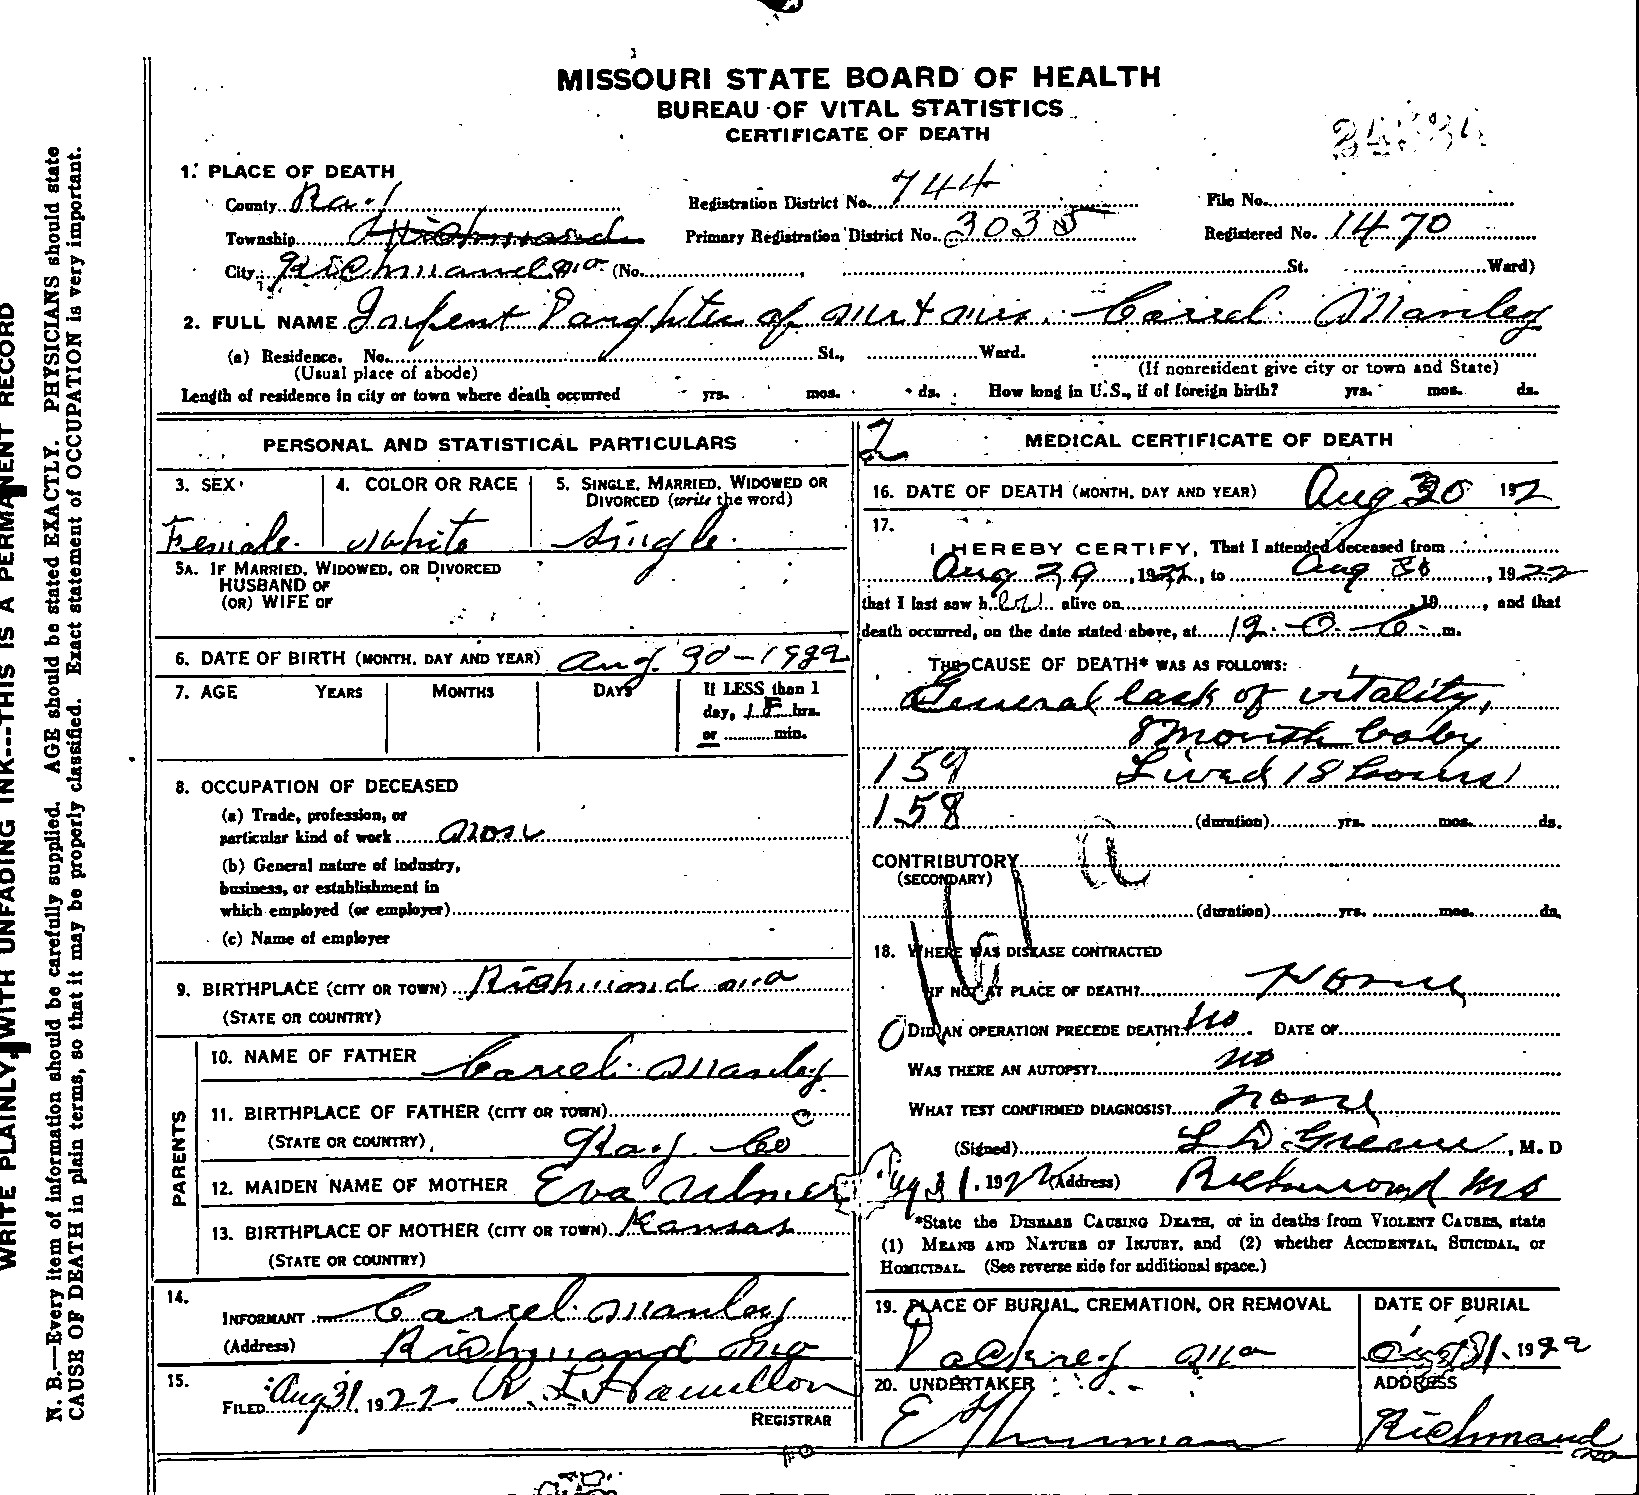 MISSOURI STATE BOARD OF HEALTH
BUREAU OF VITAL STATISTICS
CERTIFICATE OF DEATH
1. PLACE OF DEATH
County Ray Registration District No. 744 File No.
Township Richmond Primary Registration District No. 3035 Registered No. 1470
City Richmond Mo. (No. , St. Ward)
2. FULL NAME Infent Daughter of Mr & Mrs. Carrel Manley
(a) Residence. No. St., Ward.
(Usual place of abode) (If nonresident give city or town and State)
Length of residence in city or town where death occurred yrs. mos. ds. How long in U.S., if of foreign birth? yrs. mos. ds.
PERSONAL AND STATISTICAL PARTICULARS
3. SEX 4. COLOR OR RACE 5. SINGLE, MARRIED, WIDOWED OR
DIVORCED (write the word)
Female White Single
5A. IF MARRIED, WIDOWED, OR DIVORCED
HUSBAND OF
(OR) WIFE OF
6. DATE OF BIRTH (MONTH, DAY AND YEAR) Aug. 30-1922
7. AGE YEARS MONTHS DAYS If LESS than 1
day, 18 hrs.
or min.
8. OCCUPATION OF DECEASED
(a) Trade, profession, or
particular kind of work None
(b) General nature of industry,
business, or establishment in
which employed (or employer)
(c) Name of employer
9. BIRTHPLACE (CITY OR TOWN) Richmond Mo
(STATE OR COUNTRY)
PARENTS
10. NAME OF FATHER Carrel Manley
11. BIRTHPLACE OF FATHER (CITY OR TOWN)
(STATE OR COUNTRY) Ray Co
12. MAIDEN NAME OF MOTHER Eva Ulmer
13. BIRTHPLACE OF MOTHER (CITY OR TOWN) Kansas
(STATE OR COUNTRY)
14.
INFORMANT Carrel Manley
(Address) Richmond Mo
15.
FILED Aug 31, 1922 L. Hamilton
REGISTRAR
2 MEDICAL CERTIFICATE OF DEATH
16. DATE OF DEATH (MONTH, DAY AND YEAR) Aug 30 192
17.
I HEREBY CERTIFY, That I attended deceased from
Aug 29, 1922, to Aug 30, 1922
that I last saw her alive on , 19 , and that
death occurred, on the date stated above, at 12 m.
THE CAUSE OF DEATH* WAS AS FOLLOWS:
General lack of vitality,
8 month baby
159 Lived 18 hours
158 (duration) yrs. mos. ds.
CONTRIBUTORY
(SECONDARY)
(duration) yrs. mos. ds.
18. WHERE WAS DISEASE CONTRACTED
IF NOT AT PLACE OF DEATH? Home
DID AN OPERATION PRECEDE DEATH? No DATE OF
WAS THERE AN AUTOPSY? No
WHAT TEST CONFIRMED DIAGNOSIS? None
(Signed) L D Greene, M. D
Aug 31, 1922 (Address) Richmond Mo
*State the DISEASE CAUSING DEATH, or in deaths from VIOLENT CAUSES, state
(1) MEANS AND NATURE OF INJURY, and (2) whether ACCIDENTAL, SUICIDAL, or
HOMICIDAL. (See reverse side for additional space.)
19. PLACE OF BURIAL, CREMATION, OR REMOVAL DATE OF BURIAL
Mo Aug 31, 1922
20. UNDERTAKER ADDRESS
Thurman Richmond Mo
WRITE PLAINLY, WITH UNFADING INK---THIS IS A PERMANENT RECORD
N. B.—Every item of information should be carefully supplied. AGE should be stated EXACTLY. PHYSICIANS should state
CAUSE OF DEATH in plain terms, so that it may be properly classified. Exact statement of OCCUPATION is very important.